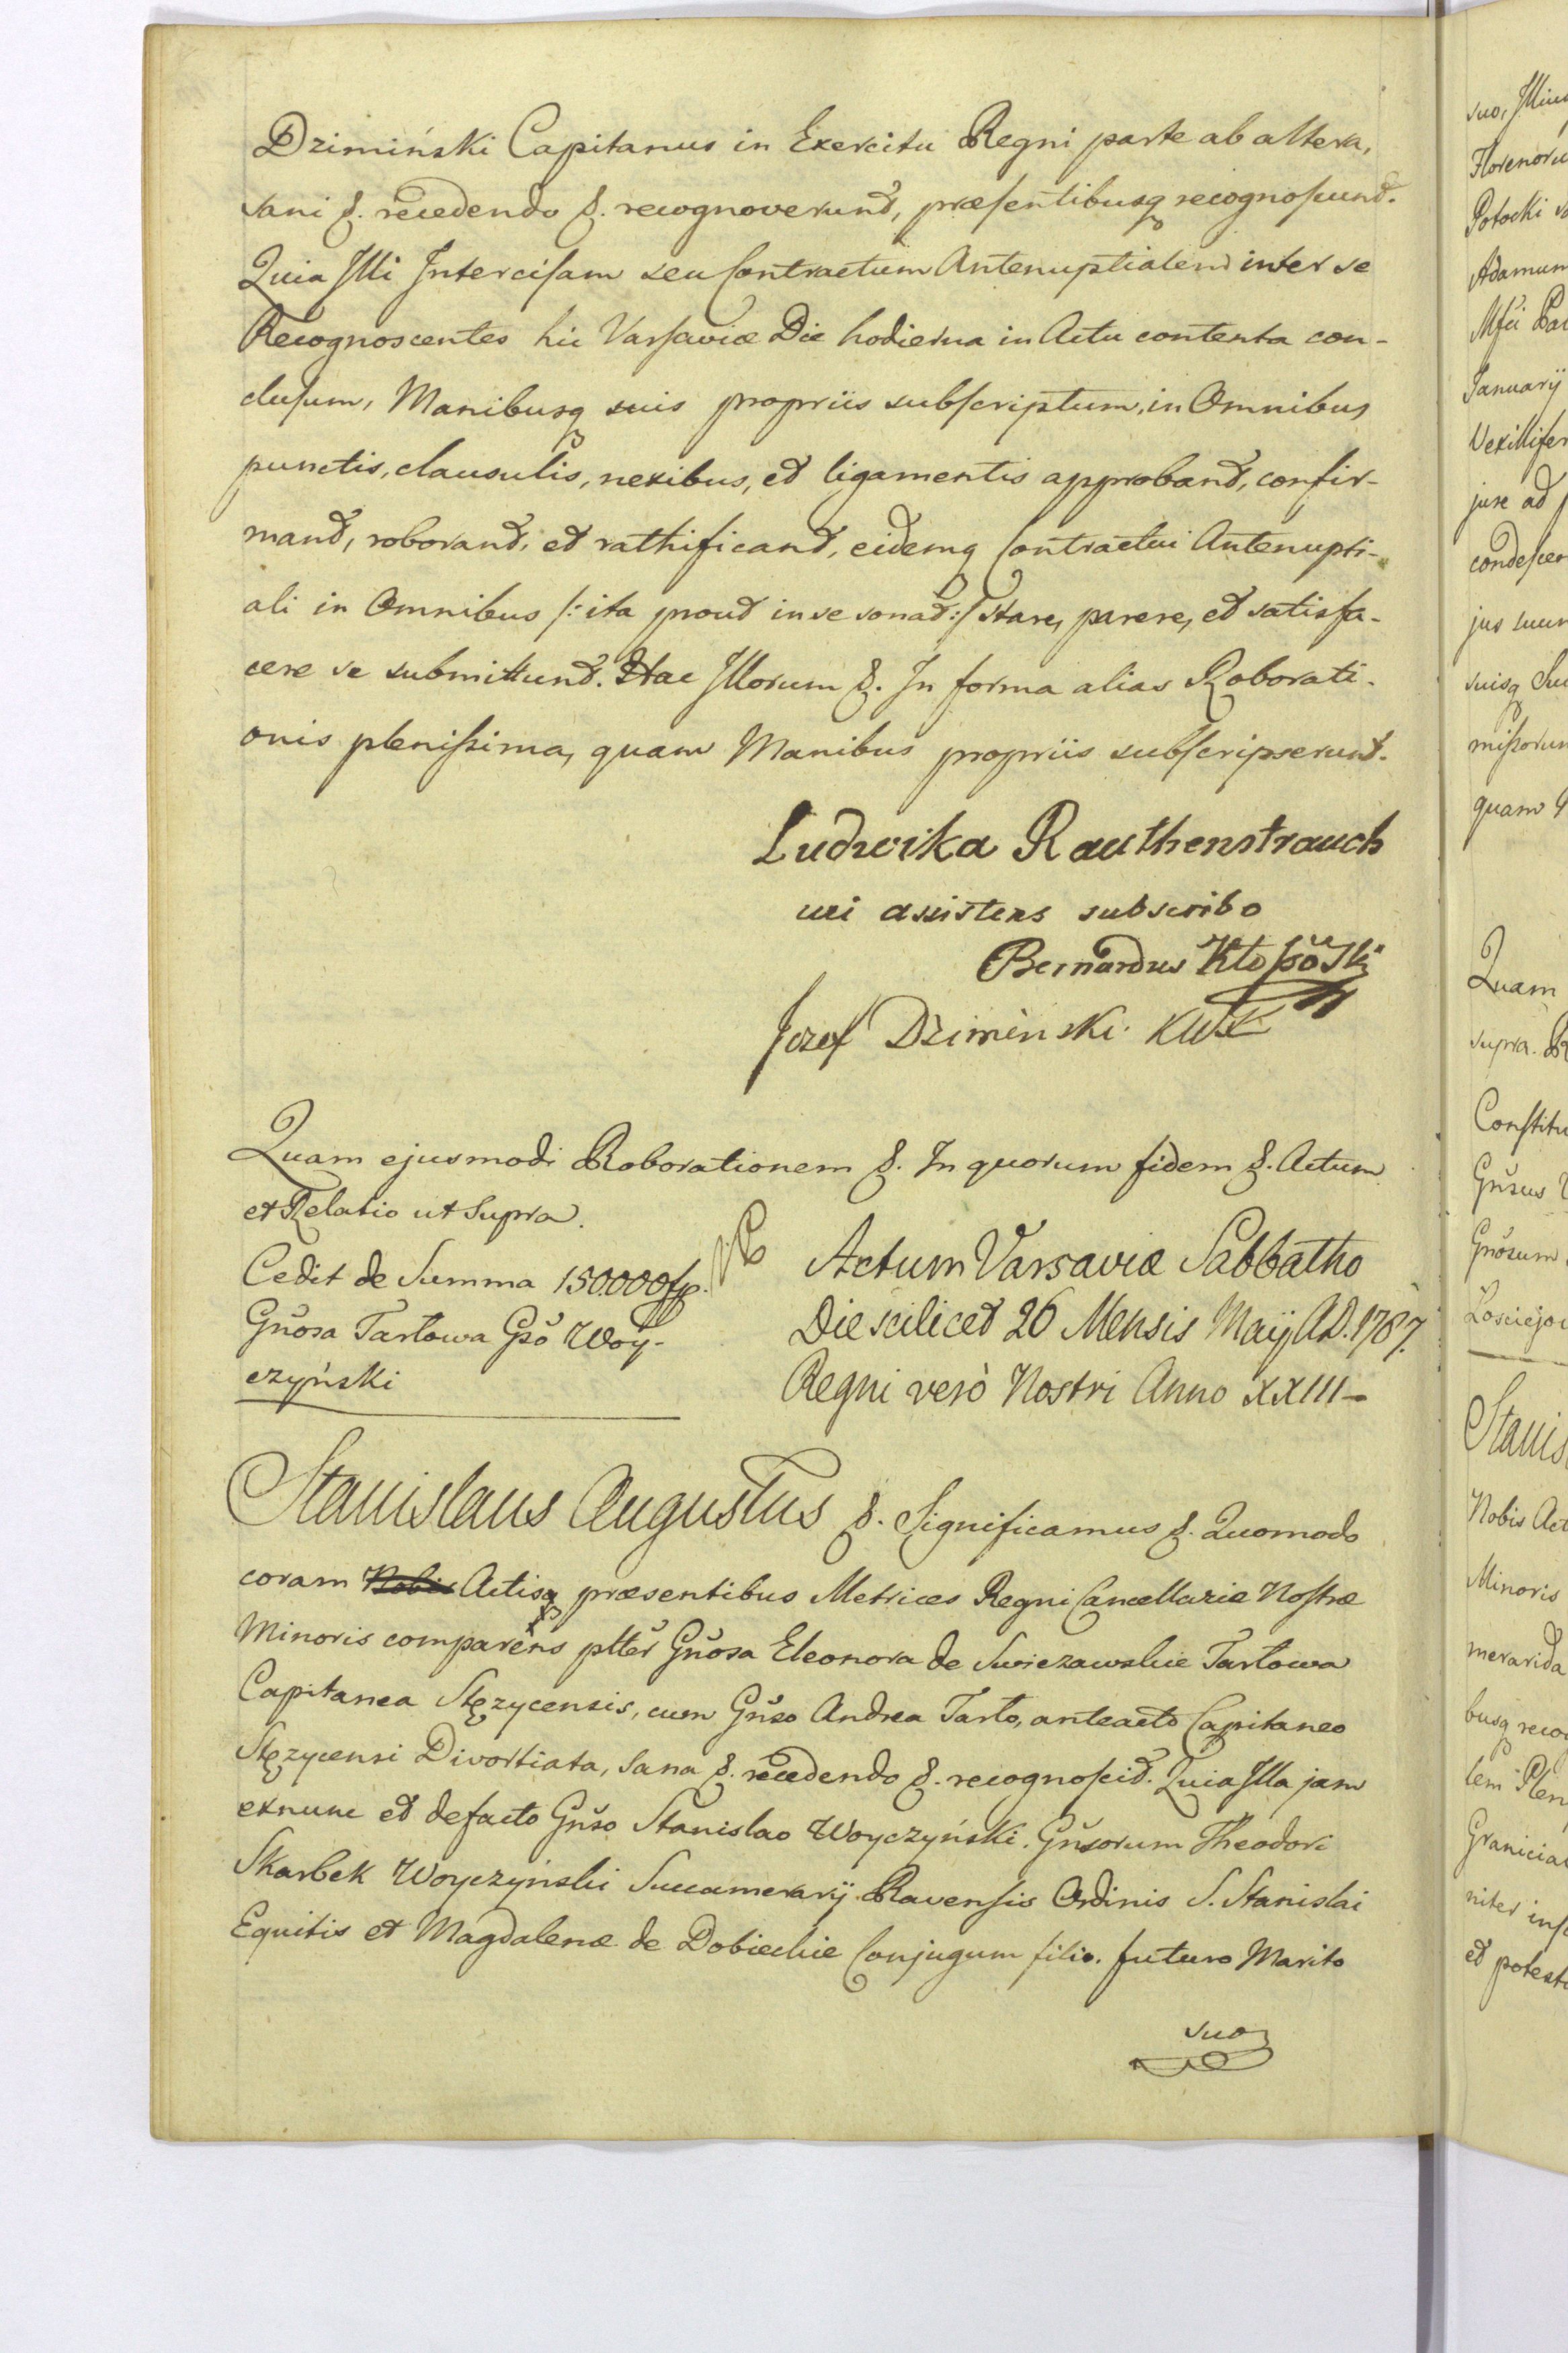 Dzimiński Capitanus in Exercitu Regni parte ab altera,
sani &. recedendo &. recognoverunt, præsentibusq recognoscunt.
Quia Illi Intercisam seu Contractum Antenuptialem inter se
Recognoscentes hic Varsaviæ Die hodierna in Actu contenta con-
clusum, Manibusq suis propriis subscriptum, in Omnibus
punctis, clausulis, nexibus, et ligamentis approbant, confir-
mant, roborant, et rathificant, eidemq Contractui Antenupti-
ali in Omnibus /: ita prout in se sonat :/ stare, parere, et satisfa-
cere se submittunt. Hac Illorum &. In forma alias Roborati-
onis plenissima, quam Manibus propriis subscripserunt.
Ludwika Rauthenstrauch
uti assistens subscribo
Bernardus
Jozef Dzimiński
Quam ejusmodi Roborationem &. In quorum fidem &. Actum
et Relatio ut Supra.
Cedit de Summa 150.000 fp.
Gn̄osa Tarłowa Gsō Woy-
czyński
Actum Varsaviæ Sabbatho
Die scilicet 26 Mensis Maij A.D. 1787.
Regni verò Nostri Anno XXIII-
Stanislaus Augustus &. Significamus &. Quomodo
coram Nobis Actisq præsentibus Metrices Regni Cancellariæ Nostræ
Minoris comparēns pltēr Gn̄osa Eleonora de Swiezawskie Tarłowa
Capitanea Stęzycensis, cum Gn̄so Andrea Tarło, anteacto Capitaneo
Stęzycensi Divortiata, sana &. recedendo &. recognoscit. Quia Illa jam
exnunc et defacto Gn̄so Stanislao Woyczyński. Gn̄sorum Theodori
Skarbek Woyczyński Succamerarij Ravensis Ordinis S. Stanislai
Equitis et Magdalenæ de Dobieckie Conjugum filio. futuro Marito
suo
suo, Illius
Florenoru
Potocki
Adamum
Januarij
Vexillifer
jure ad
condescen
jus suum
suisq
missorum
quam
Quam
supra. R
Constitu
Gn̄sus
Gn̄osum
Stanis
Nobis Act
Minoris
busq recog
Granicia
niter
et potest